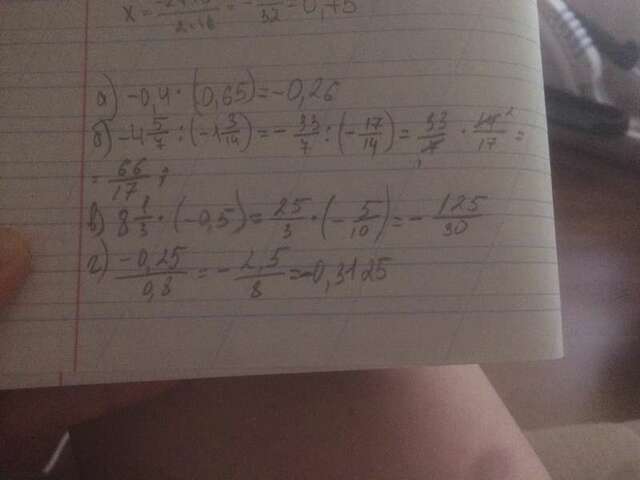 x = = - /32 = 0,75
а) -0,4 · (0,65) = -0,26
б) -4 5/7 : (-1 3/14) = - 33/7 : (- 17/14) = 33/7 · 14²/17 =
= 66/17 ;
в) 8 1/3 · (-0,5) = 25/3 · (- 5/10) = - 125/30
г) -0,25/0,8 = - 2,5/8 = -0,3125